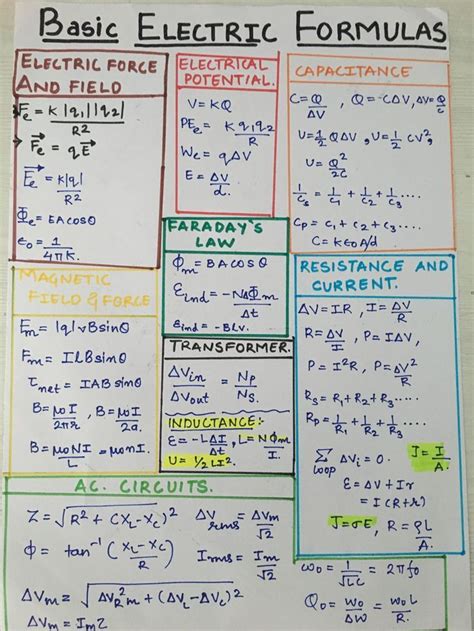 Basic Electric Formulas
ELECTRIC FORCE
AND FIELD
Fe = K|q1||q2| / R²
Fe = qE
E = K|q| / R²
Φe = EA cosθ
ε0 = 1 / 4πK.
ELECTRICAL
POTENTIAL.
V = KQ
PEe = K q1q2 / R
We = qΔV
E = ΔV / d.
CAPACITANCE
C = Q / ΔV , Q = CΔV, ΔV = Q / C
U = 1/2 QΔV , U = 1/2 CV²,
U = Q² / 2C
1/Cs = 1/C1 + 1/C2 + 1/C3 ....
Cp = C1 + C2 + C3 ....
C = Kε0A/d
FARADAY'S
LAW
Φm = BA COSθ
εind = -NΔΦm / Δt
εind = -BLV.
MAGNETIC
FIELD & FORCE
Fm = |q|vBsinθ
Fm = ILBsinθ
τnet = IABsinθ
B = μ0I / 2πr , B = μ0I / 2a.
B = μ0NI / L = μ0nI.
TRANSFORMER.
ΔVin / ΔVout = Np / Ns.
INDUCTANCE:-
ε = -LΔI / Δt , L = NΦm / I
U = 1/2 LI².
RESISTANCE AND
CURRENT.
ΔV = IR , I = ΔV / R
R = ΔV / I , P = IΔV,
P = I²R , P = ΔV² / R
Rs = R1 + R2 + R3....
Rp = 1/R1 + 1/R2 + 1/R3....
Σloop ΔVi = 0. J = I / A.
ε = ΔV + Ir
= I(R+r)
J = σE , R = ρL / A.
AC. CIRCUITS.
Z = √R² + (XL-XC)² ΔVrms = ΔVm / √2
Φ = tan⁻¹ (XL-XC / R) Irms = Im / √2
ω0 = 1 / √LC = 2πf0
ΔVm = √ΔVR²m + (ΔVL-ΔVC)²
Q0 = ω0 / Δω = ω0L / R
ΔVm = ImZ